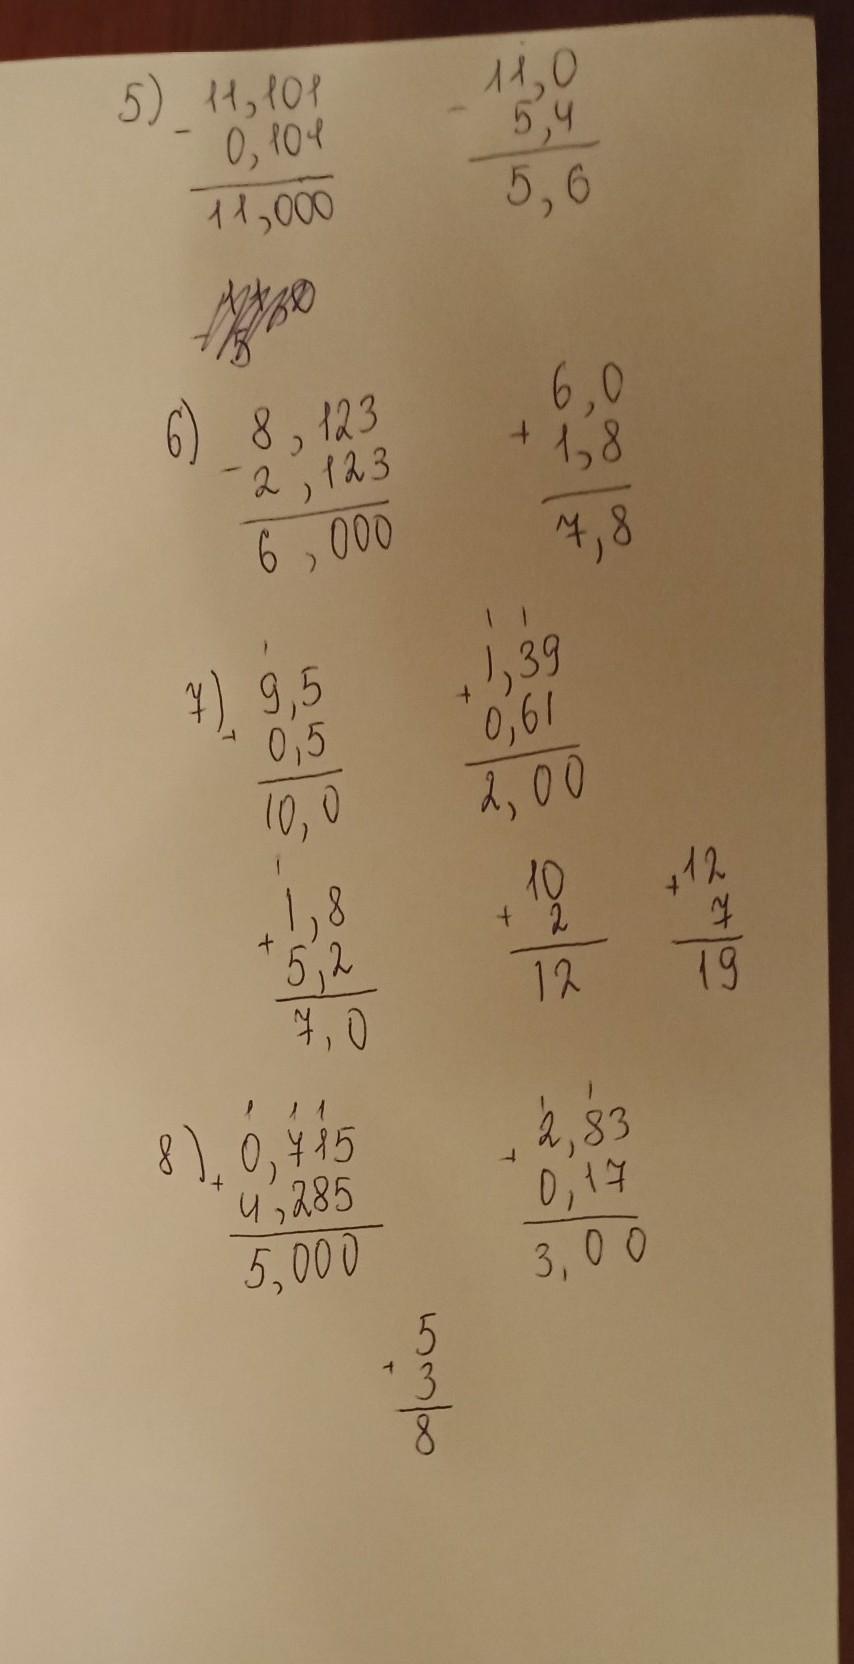 5) 11,101
- 0,101
11,000
11,0
- 5,4
5,6
6) 8,123
- 2,123
6,000
6,0
+ 1,8
7,8
1
7) 9,5
+ 0,5
10,0
1 1
1,39
+ 0,61
2,00
1
1,8
+ 5,2
7,0
10
+ 2
12
+ 12
7
19
1 1 1
8) 0,715
+ 4,285
5,000
1 1
2,83
+ 0,17
3,00
5
+ 3
8